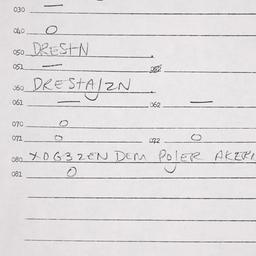 030 —
040 O
050 DRESTN
051 — 052
060 DRESTAJZN
061 — 062 —
070 O
071 O 072 O
080 XOG3ZEN DEM POJER
081 O